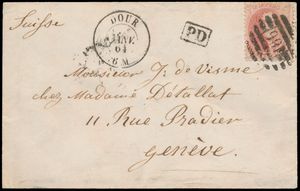 Suisse
DOUR
JANV.
64
6 M
PD
Monsieur J. de Visme
chez Madame Détallat
11 Rue Pradier
Genève